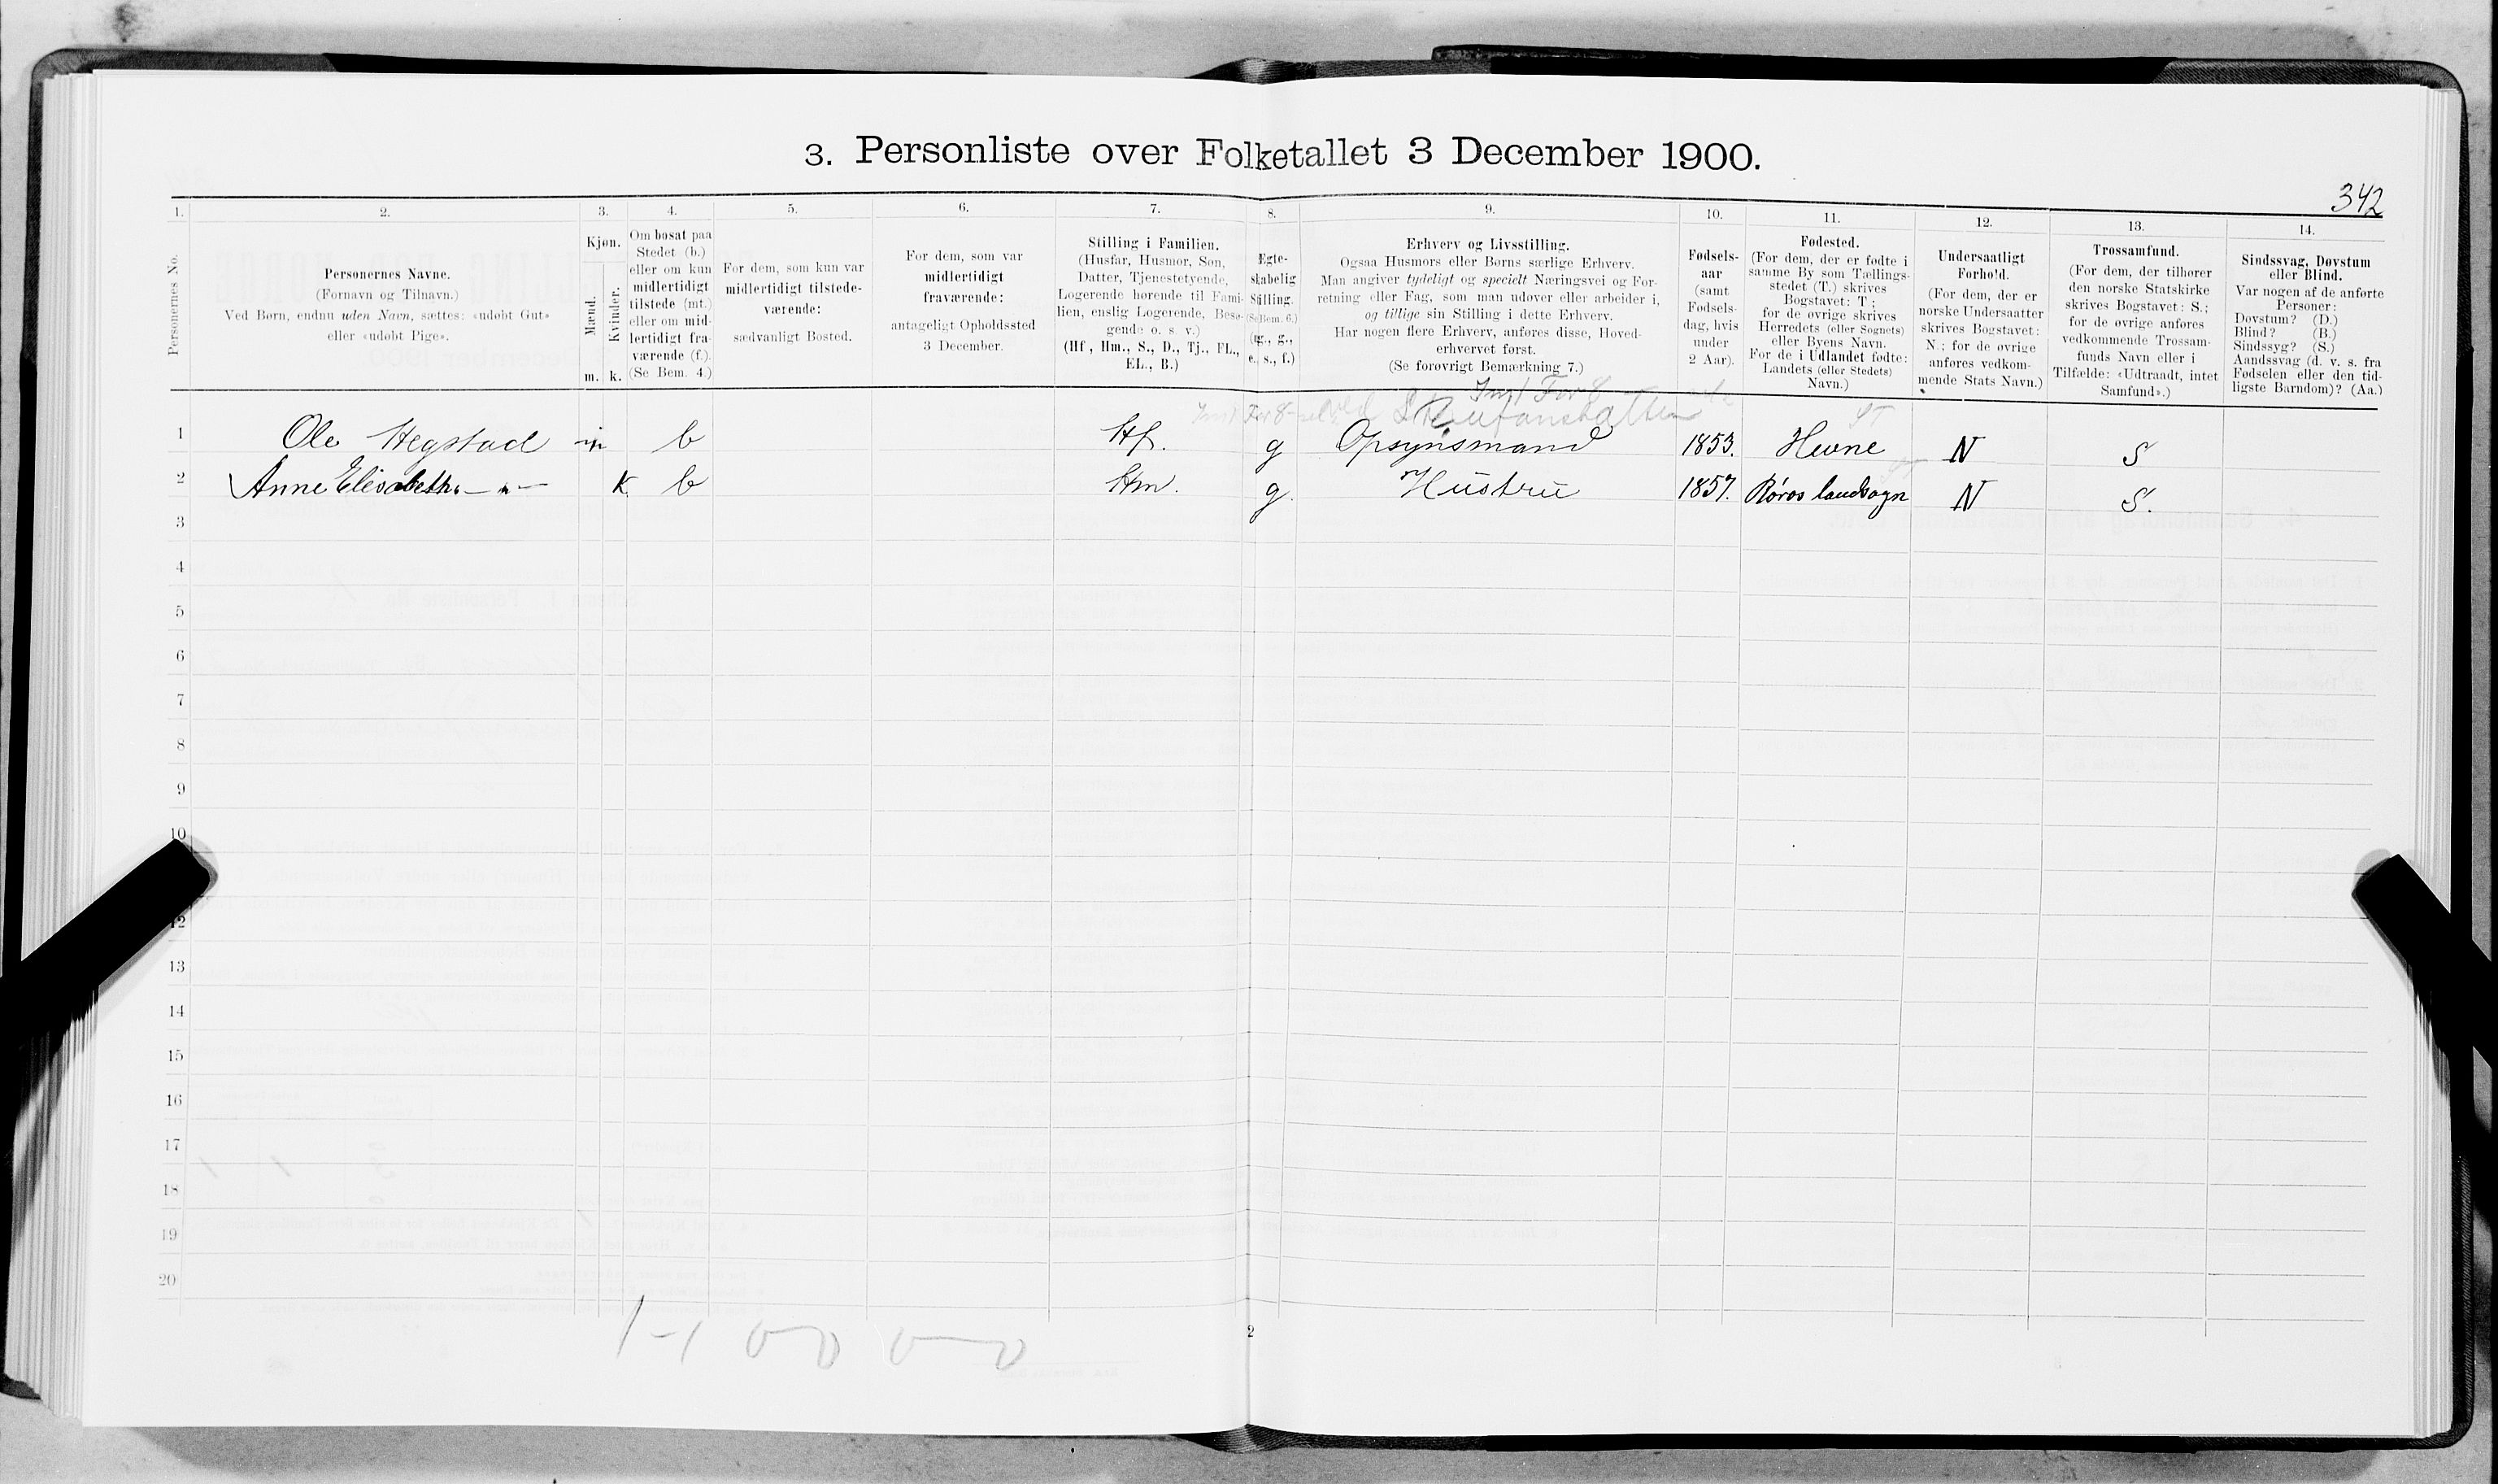 3. Personliste over Folketallet 3 December 1900.
342
1. 2. 3. 4. 5. 6. 7. 8. 9. 10. 11. 12. 13. 14.
Personernes No.
Personernes Navne.
(Fornavn og Tilnavn.)
Ved Børn, endnu uden Navn, sættes: «udøbt Gut»
eller «udøbt Pige».
Kjøn.
Mænd.
Kvinder.
m. k.
Om bosat paa
Stedet (b.)
eller om kun
midlertidigt
tilstede (mt.)
eller om mid-
lertidigt fra-
værende (f.).
(Se Bem. 4.)
For dem, som kun var
midlertidigt tilstede-
værende:
sædvanligt Bosted.
For dem, som var
midlertidigt
fraværende:
antageligt Opholdssted
3 December.
Stilling i Familien.
(Husfar, Husmor, Søn,
Datter, Tjenestetyende,
Logerende hørende til Fami-
lien, enslig Logerende, Besø-
gende o. s. v.)
(Hf., Hm., S., D., Tj., FL.,
EL., B.)
Ægte-
skabelig
Stilling.
(Se Bem. 6.)
(ug., g.,
e., s., f.)
Erhverv og Livsstilling.
Ogsaa Husmors eller Børns særlige Erhverv.
Man angiver tydeligt og specielt Næringsvei og For-
retning eller Fag, som man udøver eller arbeider i,
og tillige sin Stilling i dette Erhverv.
Har nogen flere Erhverv, anføres disse, Hoved-
erhvervet først.
(Se forøvrigt Bemærkning 7.)
Fødsels-
aar
(samt
Fødsels-
dag, hvis
under
2 Aar).
Fødested.
(For dem, der er fødte i
samme By som Tællings-
stedet (T.) skrives
Bogstavet: T;
for de øvrige skrives
Herredets (eller Sognets)
eller Byens Navn.
For de i Udlandet fødte:
Landets (eller Stedets)
Navn.)
Undersaatligt
Forhold.
(For dem, der er
norske Undersaatter
skrives Bogstavet:
N.; for de øvrige
anføres vedkom-
mende Stats Navn.)
Trossamfund.
(For dem, der tilhører
den norske Statskirke
skrives Bogstavet: S.;
for de øvrige anføres
vedkommende Trossam-
funds Navn eller i
Tilfælde: «Udtraadt, intet
Samfund».)
Sindssvag, Døvstum
eller Blind.
Var nogen af de anførte
Personer:
Døvstum? (D.)
Blind? (B.)
Sindssyg? (S.)
Aandssvag (d. v. s. fra
Fødselen eller den tid-
ligste Barndom)? (Aa.)
1 Ole Hegstad m b Hf. g Opsynsmand 1853. Hevne N S
2 Anne Elisabeth —"— k b Hm. g. Hustru 1857. Røros landsogn N S.
3
4
5
6
7
8
9
10
12
13
14
15
16
17
18
19
20
1-1 0-0 0-0
2